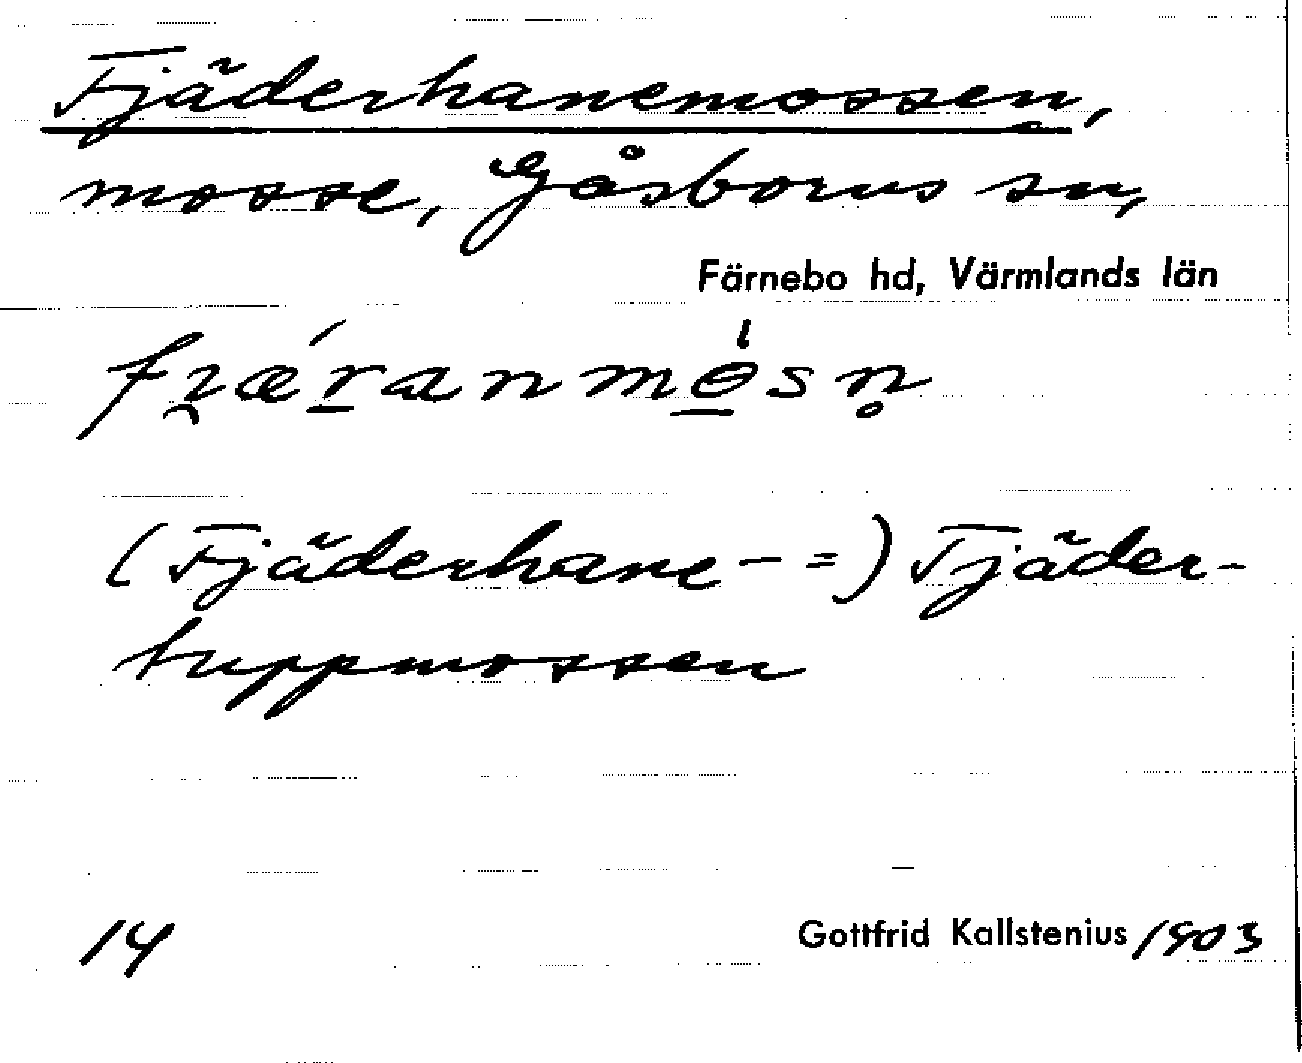 Tjäderhanemossen,
mosse, Gåsborns sn,
Färnebo hd, Värmlands län
(Tjäderhane- =) Tjäder-
tuppmossen
14 Gottfrid Kallstenius 1903